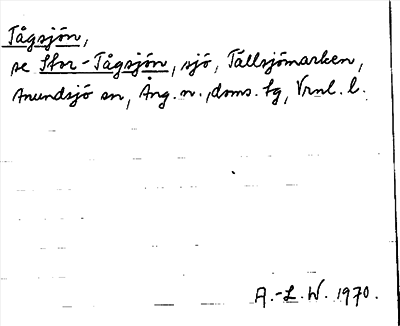 Tågsjön,
se Stor-Tågsjön, sjö, Tällsjömarken,
Anundsjö sn, Ång. n., doms. tg, Vrnl. l.
A.-L. W. 1970.